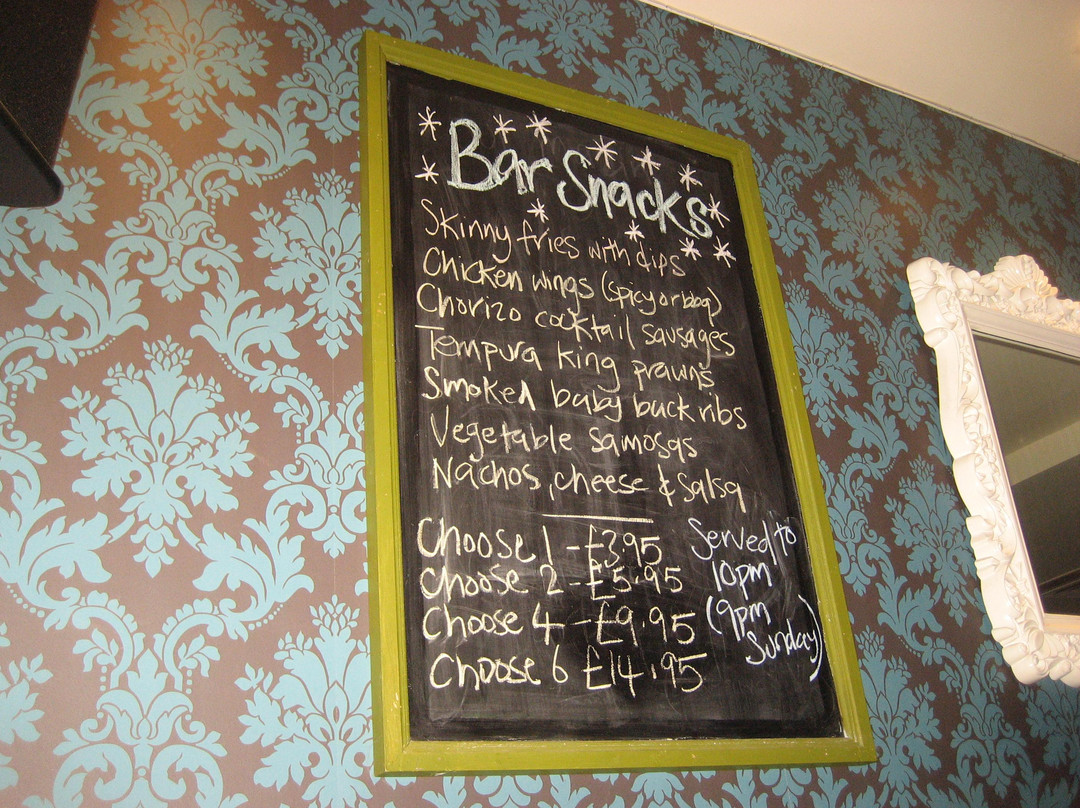 Bar Snacks
Skinny fries with dips
Chicken wings (spicy or bbq)
Chorizo cocktail sausages
Tempura king prawns
Smoked baby back ribs
Vegetable samosas
Nachos, cheese & salsa
Choose 1 - £3.95
Choose 2 - £5.95
Choose 4 - £9.95
Choose 6 £14.95
Served to
10pm
(9pm
Sunday)